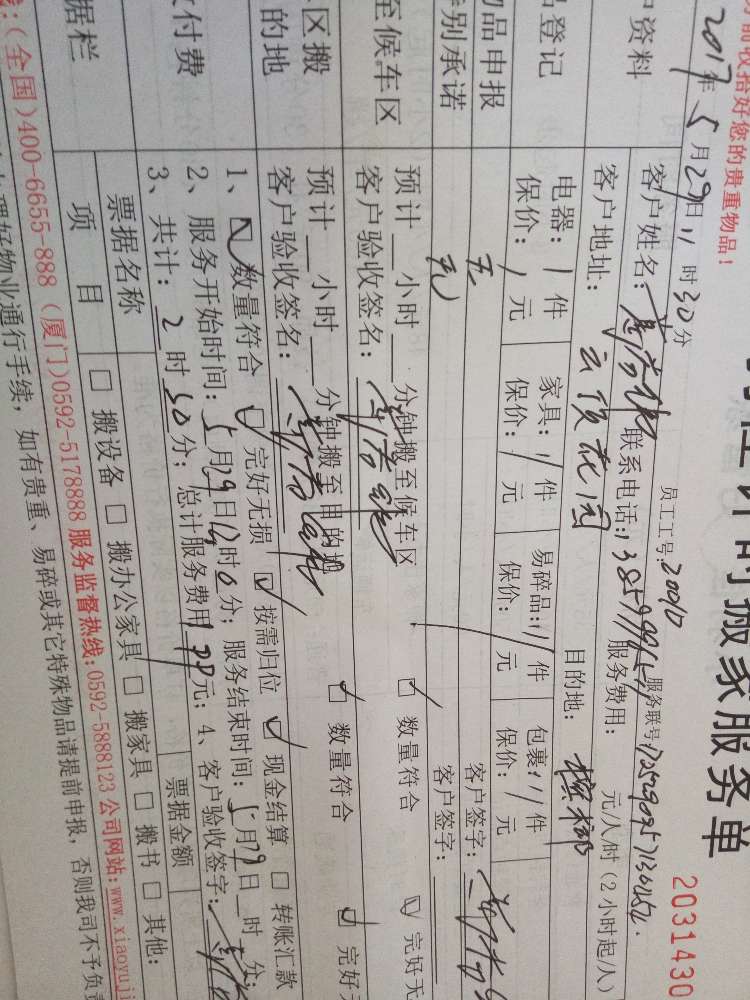 时性计时搬家服务单
2031430
前收拾好您的贵重物品!
2017年5月29日11时30分
员工工号:20010
服务联号
户资料
客户姓名:
联系电话:
服务费用: 元/人/时(2小时起/人)
客户地址:云顶花园
目的地:
品登记
电器:1件 家具:1件 易碎品:11件 包裹:11件
保价:1元 保价: 元 保价: 元 保价: 元
物品申报
无
客户签字:
特别承诺
无
客户签字:
至候车区
预计__小时__分钟搬至候车区
数量符合
完好无
客户验收签名:
区搬
的地
预计__小时__分钟搬至目的地
数量符合
完好无
客户验收签名:
付费
1、 数量符合 完好无损 按需归位 现金结算 转账汇款
2、服务开始时间:5月29日12时0分; 服务结束时间:5月29日__时__分;
3、共计:2时30分; 总计服务费用 元; 4、客户验收签字:
据栏
票据名称
票据金额
项 目
搬设备 搬办公家具 搬家具 搬书 其他:
线:(全国)400-6655-888 (厦门)0592-5178888 服务监督热线:0592-5888123 公司网站:www.xiaoyuji
办理好物业通行手续, 如有贵重、易碎或其它特殊物品请提前申报, 否则我司不予负责